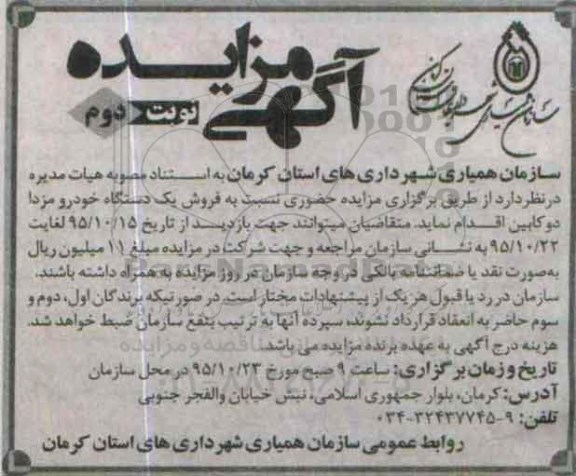 آگهی مزایده
نوبت دوم
سازمان همیاری شهرداری های استان کرمان
سازمان همیاری شهرداری های استان کرمان به استناد مصوبه هیات مدیره
درنظر دارد از طریق برگزاری مزایده حضوری نسبت به فروش یک دستگاه خودرو مزدا
دوکابین اقدام نماید. متقاضیان میتوانند جهت بازدید از تاریخ ۹۵/۱۰/۱۵ لغایت
۹۵/۱۰/۲۲ به نشانی سازمان مراجعه و جهت شرکت در مزایده مبلغ ۱۱ میلیون ریال
به‌صورت نقد یا ضمانتنامه بانکی در وجه سازمان در روز مزایده به همراه داشته باشند.
سازمان در رد یا قبول هر یک از پیشنهادات مختار است. در صورتیکه برندگان اول، دوم و
سوم حاضر به انعقاد قرارداد نشوند، سپرده آنها به ترتیب بنفع سازمان ضبط خواهد شد.
هزینه درج آگهی به عهده برنده مزایده می باشد.
تاریخ و زمان برگزاری: ساعت ۹ صبح مورخ ۹۵/۱۰/۲۳ در محل سازمان
آدرس: کرمان، بلوار جمهوری اسلامی، نبش خیابان والفجر جنوبی
تلفن: ۹-۳۲۴۳۷۷۴۵-۰۳۴
روابط عمومی سازمان همیاری شهرداری های استان کرمان